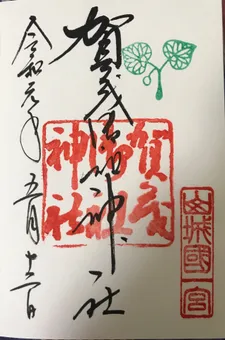 賀茂御祖神社
賀茂
御祖
神社
山城國一宮
令和元年五月十二日